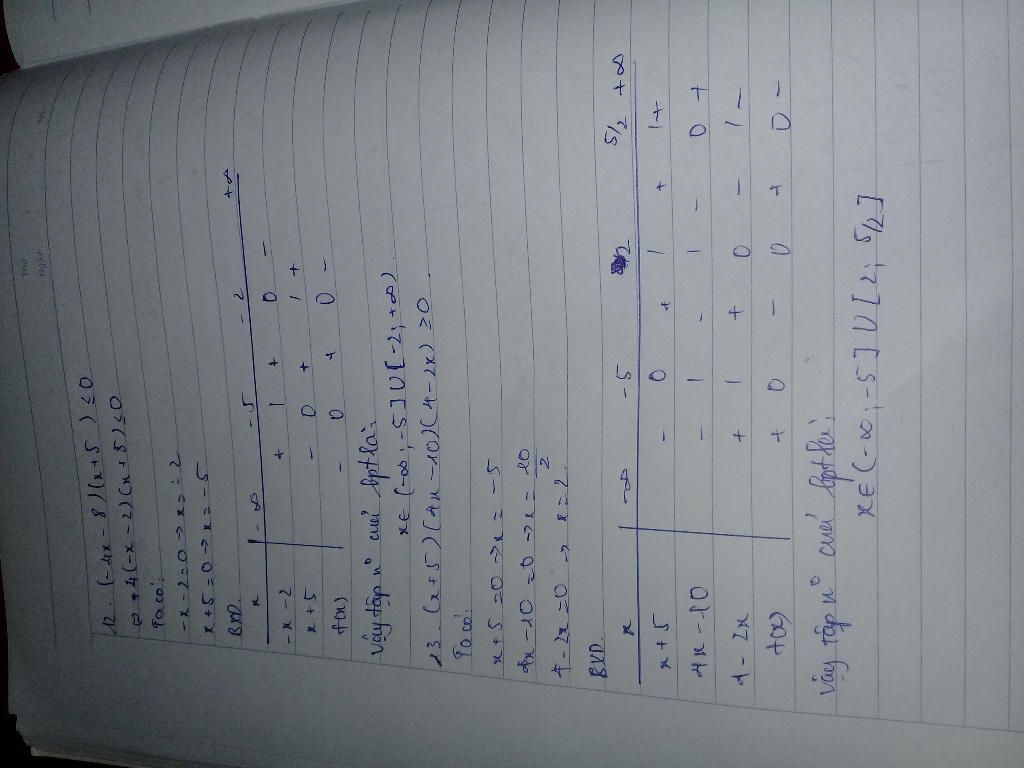 12. (-4x - 8)(x + 5) ≤ 0
⇔ 4(-x - 2)(x + 5) ≤ 0
Ta có:
-x - 2 = 0 → x = -2
x + 5 = 0 → x = -5
BXD.
x | -∞ -5 -2 +∞
-x - 2 | + | + 0 -
x + 5 | - 0 + | +
f(x) | - 0 + 0 -
Vậy tập n° của bpt là:
x ∈ (-∞; -5] ∪ [-2; +∞)
13. (x + 5)(4x - 10)(4 - 2x) ≥ 0
Ta có:
x + 5 = 0 → x = -5
4x - 10 = 0 → x = 10/2
4 - 2x = 0 → x = 2
BXD.
x | -∞ -5 2 5/2 +∞
x + 5 | - 0 + | + | +
4x - 10 | - | - | - 0 +
4 - 2x | + | + 0 - | -
f(x) | + 0 - 0 + 0 -
Vậy tập n° của bpt là:
x ∈ (-∞; -5] ∪ [2; 5/2]